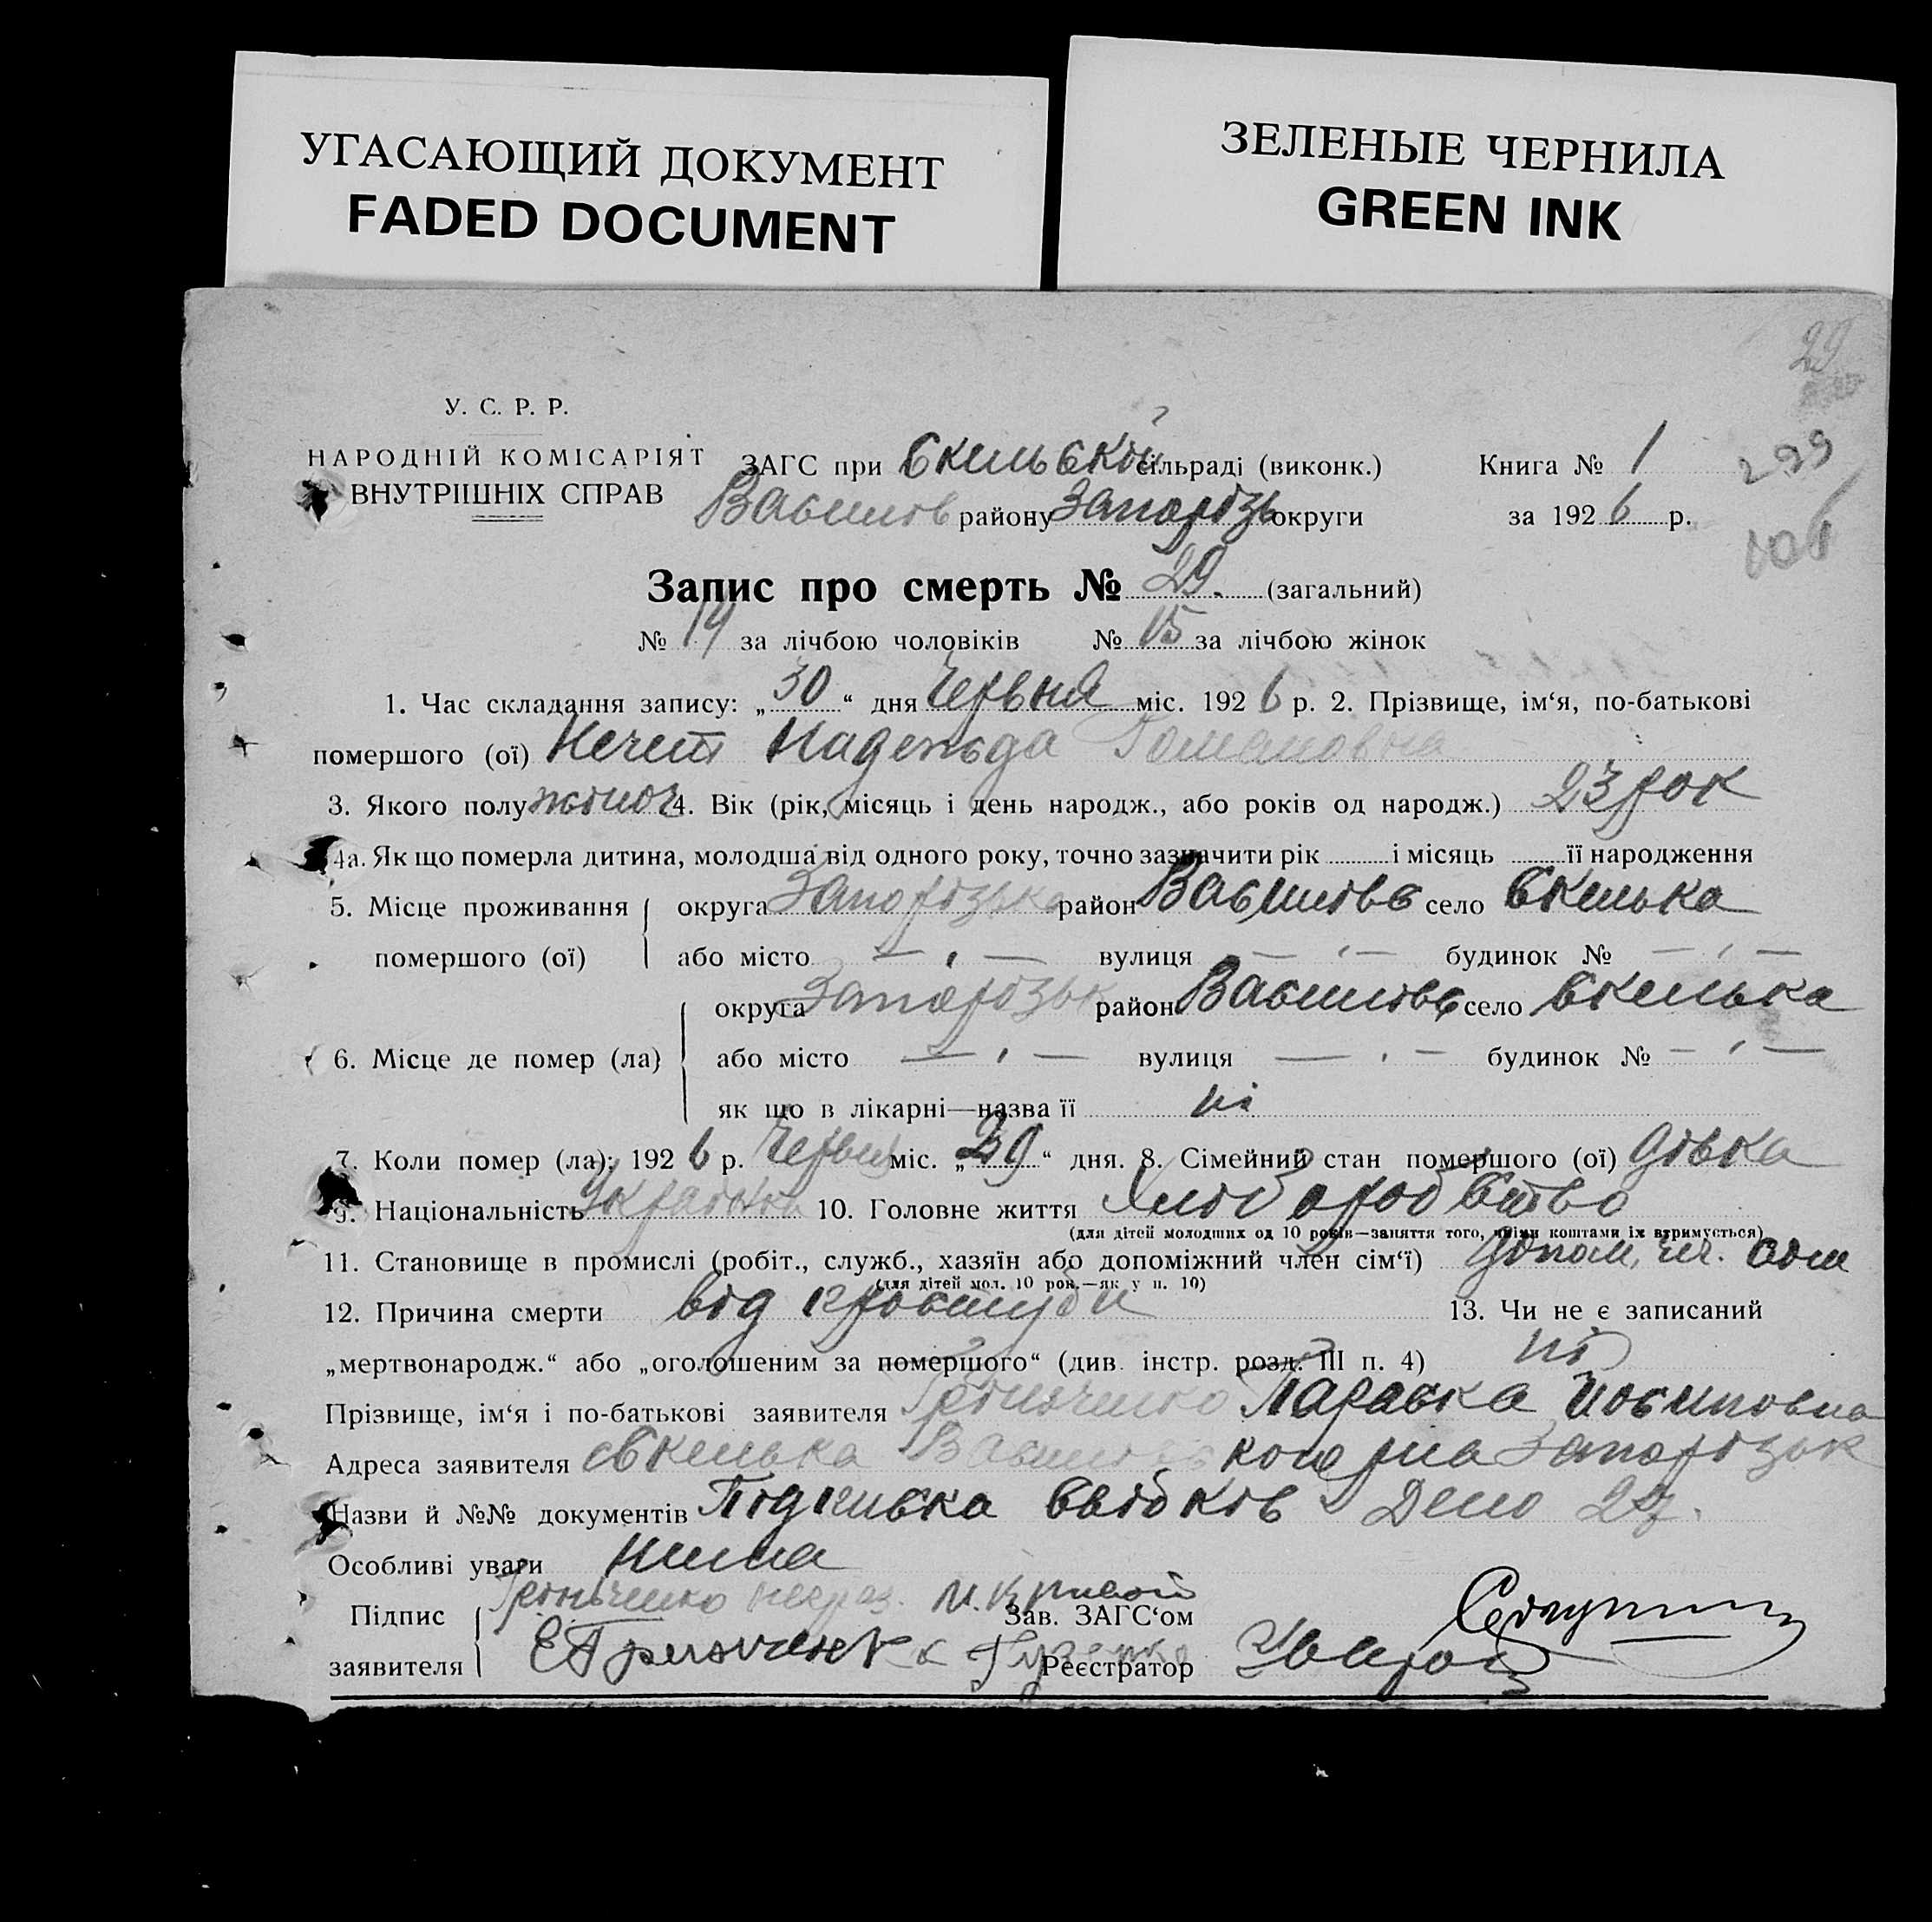 УГАСАЮЩИЙ ДОКУМЕНТ
FADED DOCUMENT
ЗЕЛЕНЫЕ ЧЕРНИЛА
GREEN INK
29
У. С. Р. Р.
НАРОДНІЙ КОМІСАРІЯТ
ВНУТРІШНІХ СПРАВ
ЗАГС при Скельській сільраді (виконк.)
Василів району Запорізь округи
Книга № 1
за 1926 р.
299
Запис про смерть № 29. (загальний)
№ 14 за лічбою чоловіків № 15 за лічбою жінок
1. Час складання запису: „30“ дня Червня міс. 1926 р. 2. Прізвище, ім‘я, по-батькові
помершого (ої) Надежда Романовна
3. Якого полу жіноч 4. Вік (рік, місяць і день народж., або років од народж.) 23 рок
4а. Як що померла дитина, молодша від одного року, точно зазначити рік і місяць її народження
5. Місце проживання помершого (ої) округа Запорізька район Василівс село Скелька
або місто — „ — вулиця — „ — будинок № — „ —
6. Місце де помер (ла) округа Запорізьк район Василівс село Скелька
або місто — „ — вулиця — „ — будинок № — „ —
як що в лікарні—назва її ні
7. Коли помер (ла): 1926 р. Червня міс. „29“ дня. 8. Сімейний стан помершого (ої) дівка
9. Національність Українка 10. Головне життя Хліборобство
(для дітей молодших од 10 років—заняття того, чиїми коштами їх втримується)
11. Становище в промислі (робіт., служб., хазяїн або допоміжний член сім‘ї) допом. чл. сем
(для дітей мол. 10 рок.—як у п. 10)
12. Причина смерти від простуди 13. Чи не є записаний
„мертвонародж.“ або „оголошеним за помершого“ (див. інстр. розд. III п. 4) ні
Прізвище, ім‘я і по-батькові заявителя Гріньченко Параска Йосиповна
Адреса заявителя с Скелька Василівського р-на Запорізьк
Назви й №№ документів Підписка свідків Дело 27.
Особливі уваги Нима
Підпис заявителя Гріньченко неграз.
Зав. ЗАГС‘ом
Реєстратор